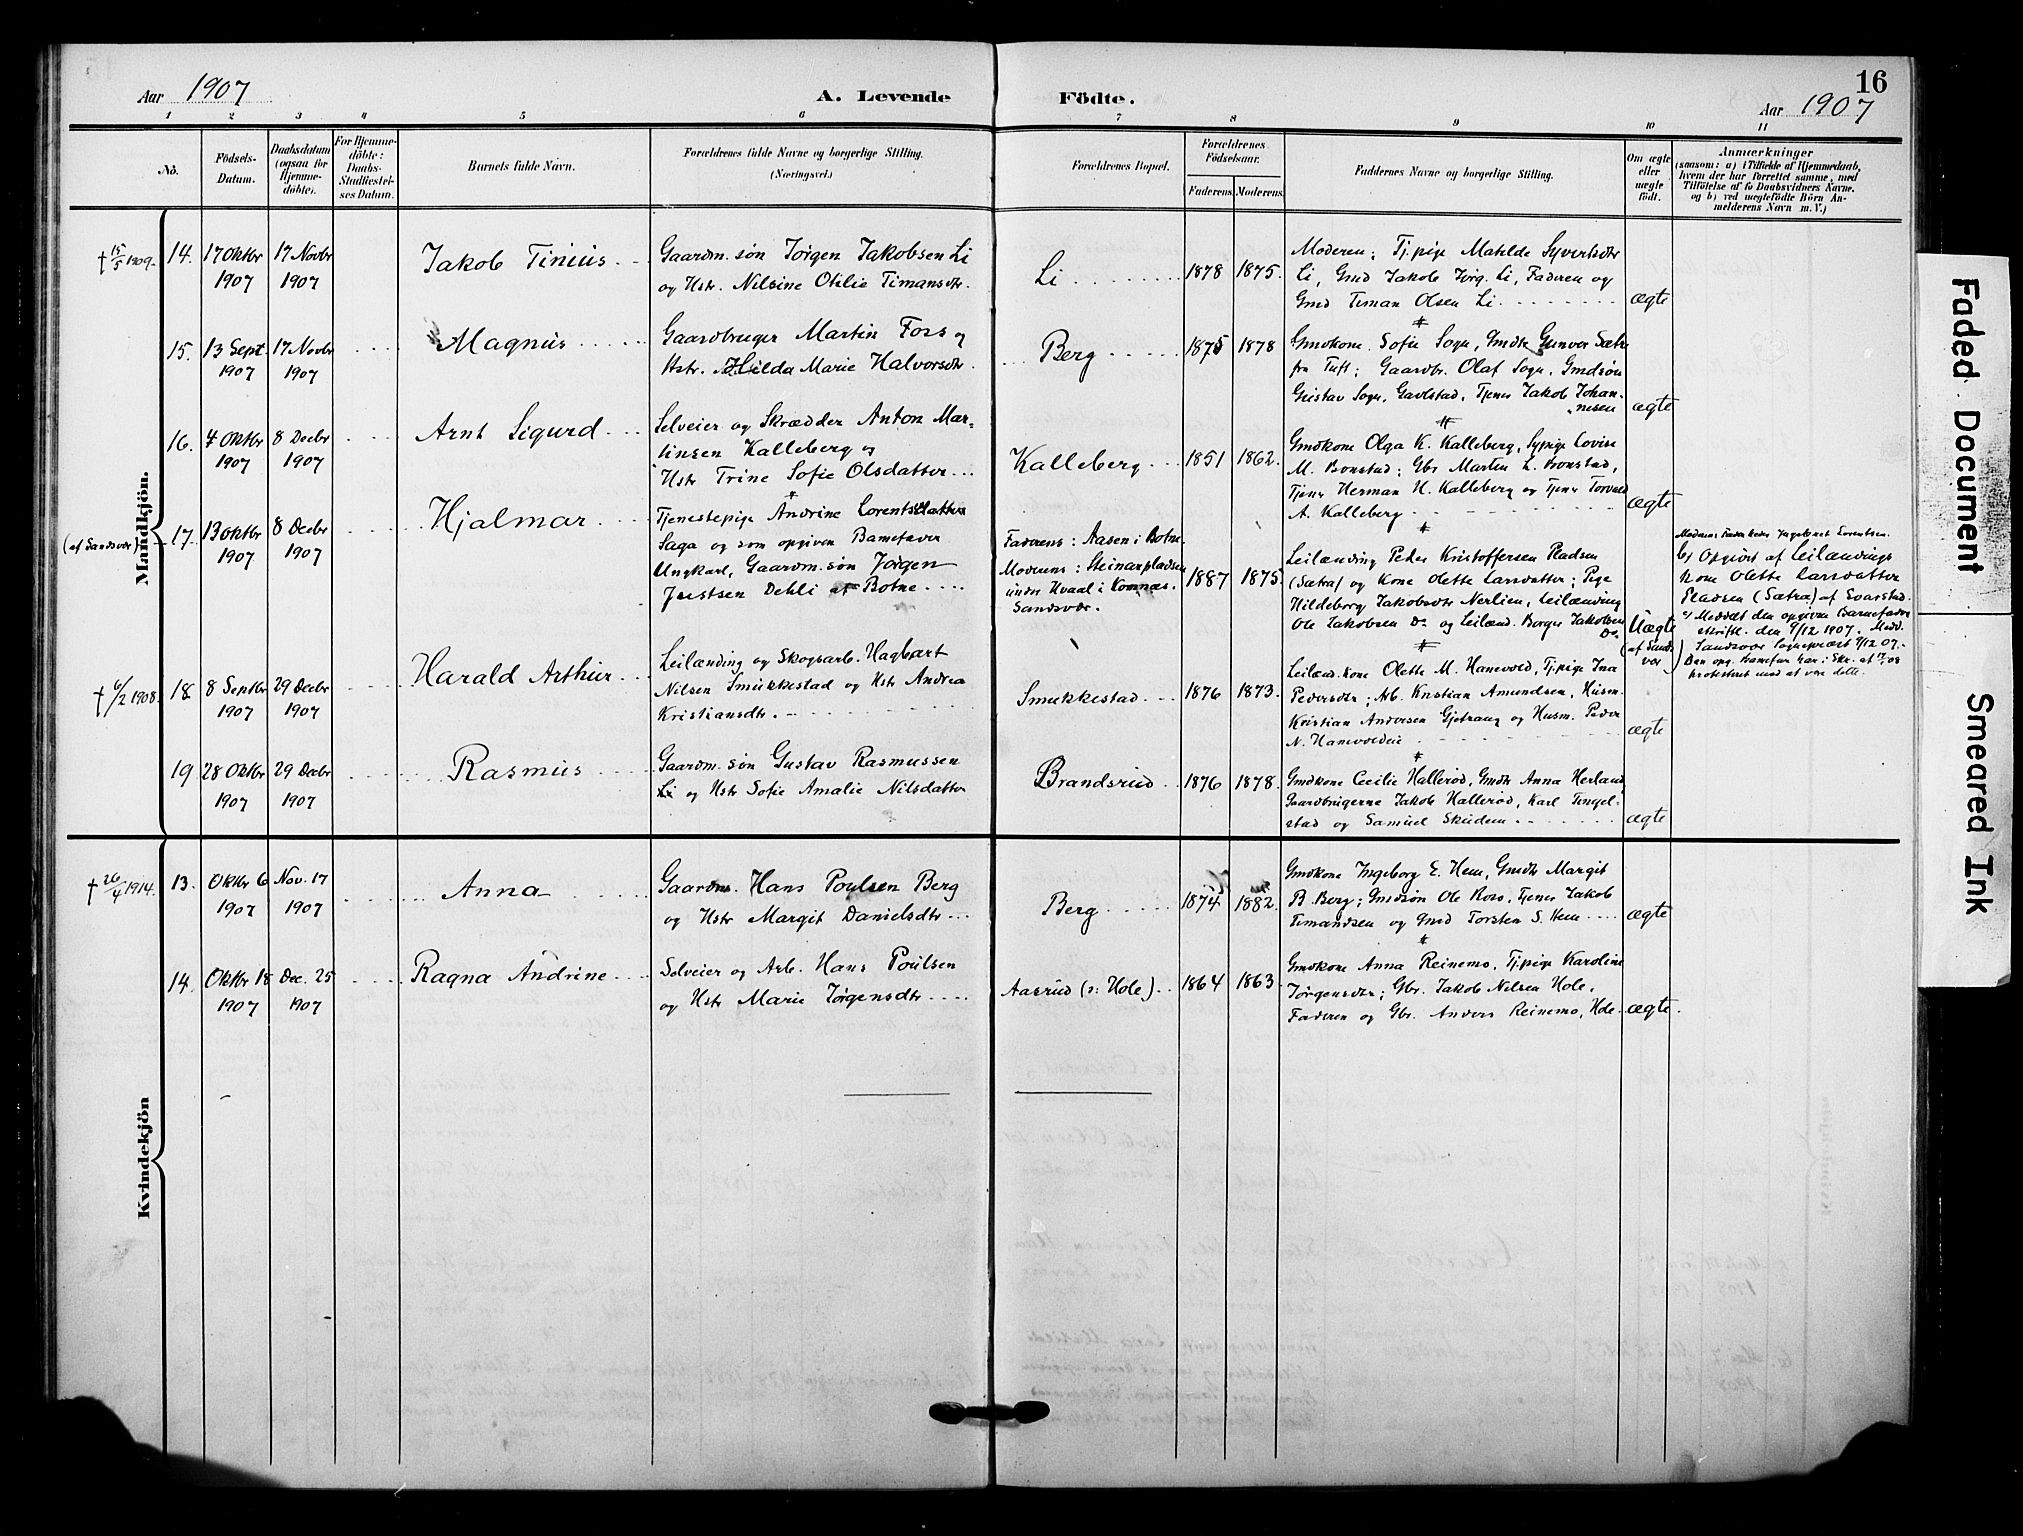 Aar 1907
A. Levende
Födte.
16
Aar 1907
1 2 3 4 5 6 7 8 9 10 11
No.
Födsels-
Datum.
Daabsdatum
(ogsaa for
Hjemme-
döbte).
For Hjemme-
döbte:
Daabs-
Stadfæstel-
ses Datum.
Barnets fulde Navn.
Forældrenes fulde Navne og borgerlige Stilling.
(Næringsvei.)
Forældrenes Bopæl.
Forældrenes
Födselsaar.
Faderens. Moderens.
Faddernes Navne og borgerlige Stilling.
Om ægte
eller
uægte
födt.
Anmærkninger
(saasom: a) i Tilfælde af Hjemmedaab,
hvem der har forrettet samme, med
Tilföielse af to Daabsvidners Navne,
og b) ved uægtefödte Börn An-
melderens Navn m. V.)
Mandkjön.
† 15/5 1909.
14.
17 Oktbr
1907
17 Novbr
1907
Jakob Tinius
Gaardm. søn Jørgen Jakobsen Li
og Hstr. Nilsine Otilie Timansdtr.
Li
1878
1875.
Moderen; Tj.pige Matilde Syvertsdtr
Li, Gmd Jakob Jørg. Li, Faderen og
Gmd Timan Olsen Li.
ægte
15.
13 Sept.
1907
17 Novbr
1907
Magnus
Gaardbruger Martin Foss og
Hstr. Hilda Marie Halvorsdtr.
Berg
1875
1878
Gmdkone Sofie Sogn, Gmdtr Gunvor Sætre
fra Tuft; Gaardbr. Olaf Sogn, Gmdsøn
Gustav Sogn, Gavlstad, Tjener Jakob Johan-
nesen
ægte
16.
7 Oktbr
1907
8 Decbr
1907
Arnt Sigurd
Selveier og Skrædder Anton Mar-
tinsen Kalleberg og
Hstr Trine Sofie Olsdatter
Kalleberg
1851
1862.
Gmdkone Olga K. Kalleberg, Sypige Lovise
M. Bonstad; Gbr Marten L. Bonstad,
Tjener Herman H. Kalleberg og Tjener Torvald
A. Kalleberg
ægte
(af Sandsvær)
17.
13 Oktbr
1907
8 Decbr
1907
Hjalmar
Tjenestepige Andrine Lorentsdatter
Saga og som opgiven Barnefader
Ungkarl, Gaardm. søn Jørgen
Justsen Dehli af Botne.
Faderens: Aasen i Botne.
Moderens: Steinarpladsen
under Kvaal i Komnæs.
Sandsvær.
1887
1875.
Leilænding Peder Kristoffersen Pladsen
(Sætra) og Kone Olette Larsdatter; Pige
Hildeborg Jakobsdtr Nerlien, Leilænding
Ole Jakobsen Do og Leilænd. Borger Jakobsen
Do.
Uægte
(af Sands-
vær)
b) Opgivet af Leilændings
kone Olette Larsdatter
Pladsen (Sætra) af Svarstad.
c) Meddelt den opgivne Barnefader
skriftl. den 9/12 1907. Medd.
Sandsvær Sognepræst 9/12 07.
† 6/2 1908.
18.
8 Septbr
1907
29 Decbr
1907
Harald Arthur
Leilænding og Skogsarb. Hagbart
Nilsen Smukkestad og Hstr Andrea
Kristiansdtr.
Smukkestad
1876
1873.
Leilænd. kone Olette M. Hanevold, Tj.pige Ina
Pedersdtr; Arb. Kristian Amundsen, Husm.
Kristian Andersen Gjetrang og Husm. Peder
N. Hanevoldeie
ægte
19
28 Oktbr
1907
29 Decbr
1907
Rasmus
Gaardm. søn Gustav Rasmussen
Li og Hstr Sofie Amalie Nilsdatter
Brandsrud
1876
1878.
Gmdkone Cecilie Hallerød, Gmdtr Anna Herland
Gaardbrugerne Jakob Hallerød, Karl Tingel-
stad og Samuel Skudem.
ægte
Kvindekjön
† 26/4 1914.
13.
Oktbr 6
1907
Nov. 17
1907
Anna
Gaardm. Hans Poulsen Berg
og Hstr Margit Danielsdtr
Berg
1874
1882.
Gmdkone Ingeborg E. Hem, Gmdtr Margit
B. Berg; Gmdsøn Ole Foss, Tjener Jakob
Timandsen og Gmd Torsten S. Hem
ægte
14.
Oktbr 18
1907
Dec. 25
1907
Ragna Andrine
Selveier og Arb. Hans Poulsen
og Hstr Marie Jørgensdtr
Aasrud (n: Hole)
1864
1863.
Gmdkone Anna Reinemo, Tj.pige Karoline
Jørgensdtr; Gbr. Jakob Nilsen Hole,
Faderen og Gbr. Anders Reinemo, Hole.
ægte.
Faded Document
Smeared Ink